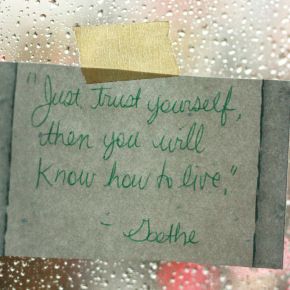 "Just trust yourself,
then you will
know how to live."
- Goethe